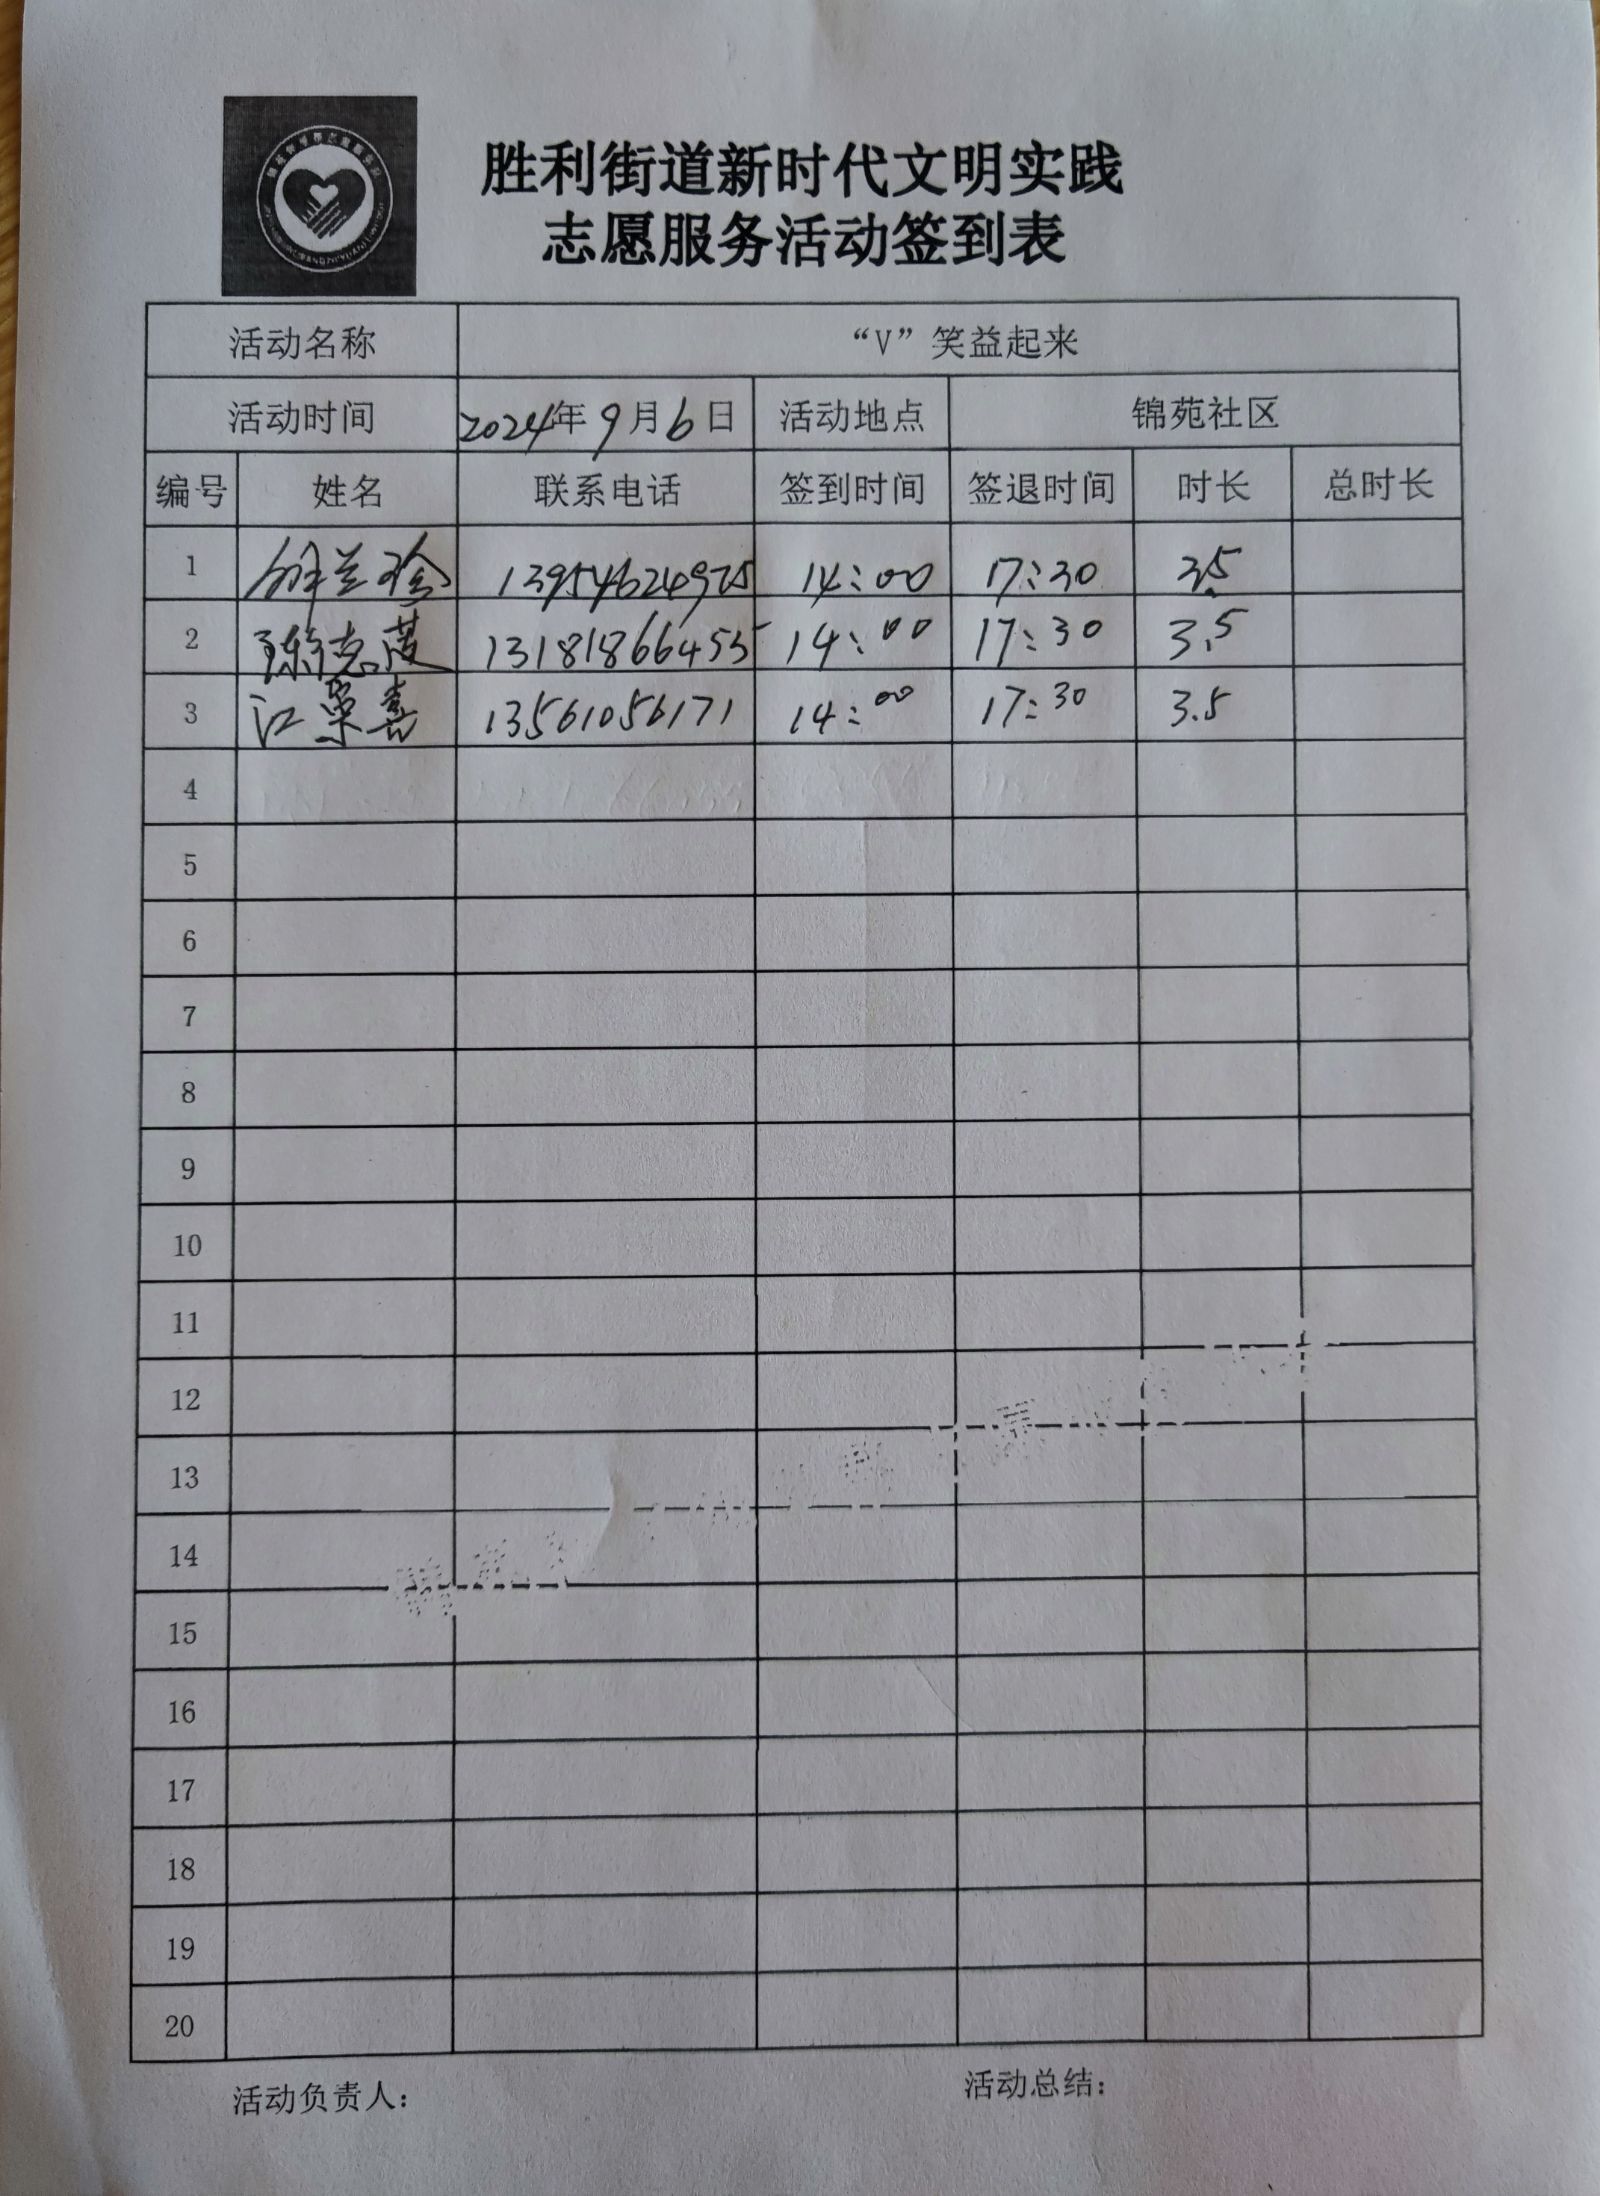 胜利街道新时代文明实践
志愿服务活动签到表
活动名称 “V”笑益起来
活动时间 2024年9月6日 活动地点 锦苑社区
编号 姓名 联系电话 签到时间 签退时间 时长 总时长
1 兰珍 13954624975 14:00 17:30 3.5
2 陈志霞 13181866455 14:00 17:30 3.5
3 江荣喜 13561056171 14:00 17:30 3.5
4
5
6
7
8
9
10
11
12
13
14
15
16
17
18
19
20
活动负责人: 活动总结: